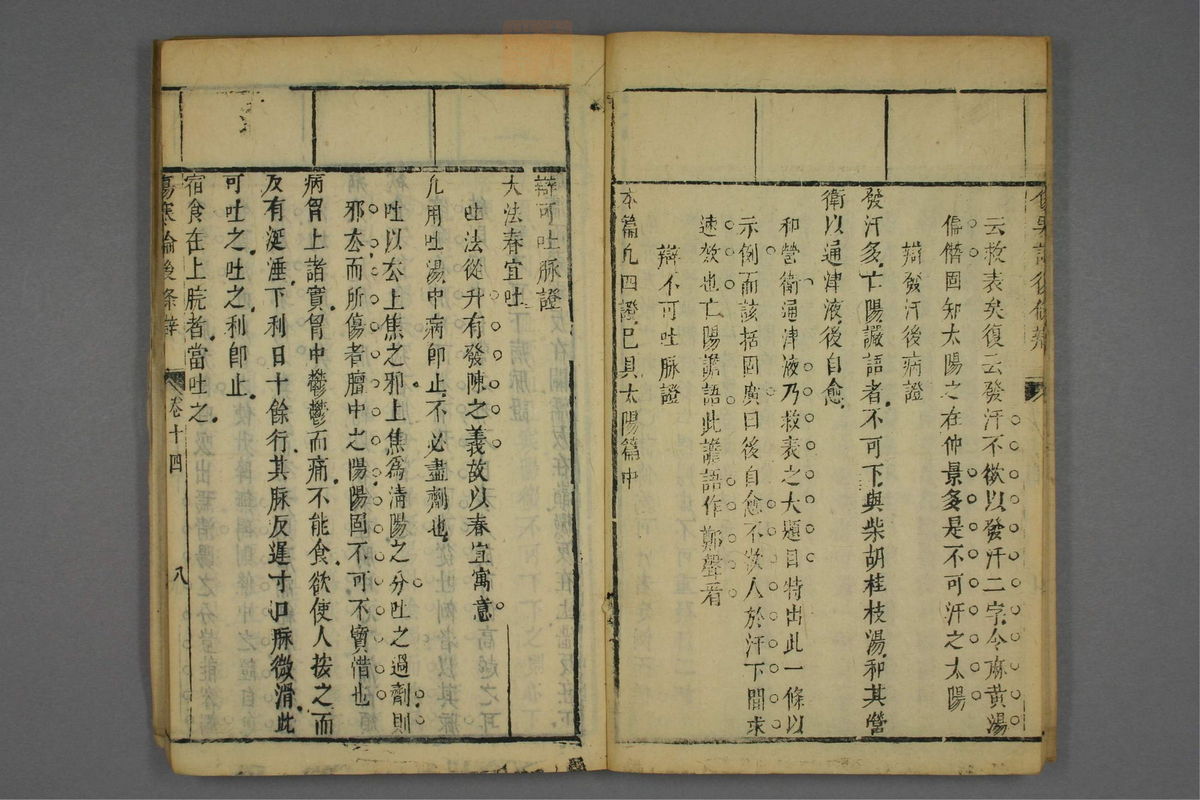 云救表矣復云發汗不欲以發汗二字令麻黃湯
偏僭固知太陽之在仲景多是不可汗之太陽
辯發汗後病證
發汗多亡陽讝語者不可下與柴胡桂枝湯和其營
衛以通津液後自愈
和營衛通津液乃救表之大題目特出此一條以
示例而該括固廣曰後自愈不欲人於汗下間求
速效也亡陽譫語此譫語作鄭聲看
辯不可吐脈證
本篇凡四證已具太陽篇中
辯可吐脈證
大法春宜吐
吐法從升有發陳之義故以春宜寓意
凡用吐湯中病卽止不必盡劑也
吐以去上焦之邪上焦爲清陽之分吐之過劑則
邪去而所傷者膻中之陽陽固不可不寶惜也
病胷上諸實胷中鬱鬱而痛不能食欲使人按之而
反有涎淶下利日十餘行其脈反遲寸口脈微滑此
可吐之吐之利卽止
宿食在上脘者當吐之
傷寒論後條辯
卷十四
八